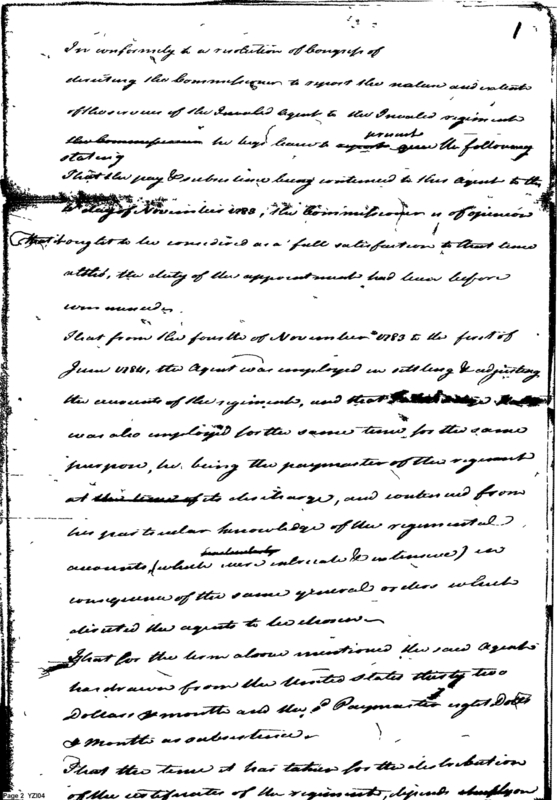 1
In conformity to a resolution of Congress of
directing the Commissioner to report the nature and extent
of the services of the Invalid Agent to the Invalid regiment
the Commissioner he begs leave to report give the following
present
stating
That the pay & subsistence being continued to this Agent to the
4th day of November 1783, the Commissioner is of opinion
that ought to be considered as a full satisfaction to that time
altho, the duty of the appointment had been before
commenced.
That from the fourth of November 1783 to the first of
June 1784, the Agent was employed in settling & adjusting
the accounts of the regiment, and that
was also employed for the same time for the same
purpose, he being the paymaster of the regiment
at the time of its discharge, and continued from
his particular knowledge of the regimental
accounts (which were intricate & extensive) in
consequence of the same general orders which
directed the agents to be chosen.
That for the term above mentioned the said Agent
has drawn from the United States thirty two
Dollars month and the sd Paymaster eight Dollrs
month as subsistence.
That the time it has taken for the distribution
of the certificates of the regiment, depends upon
Page 2 YZI04